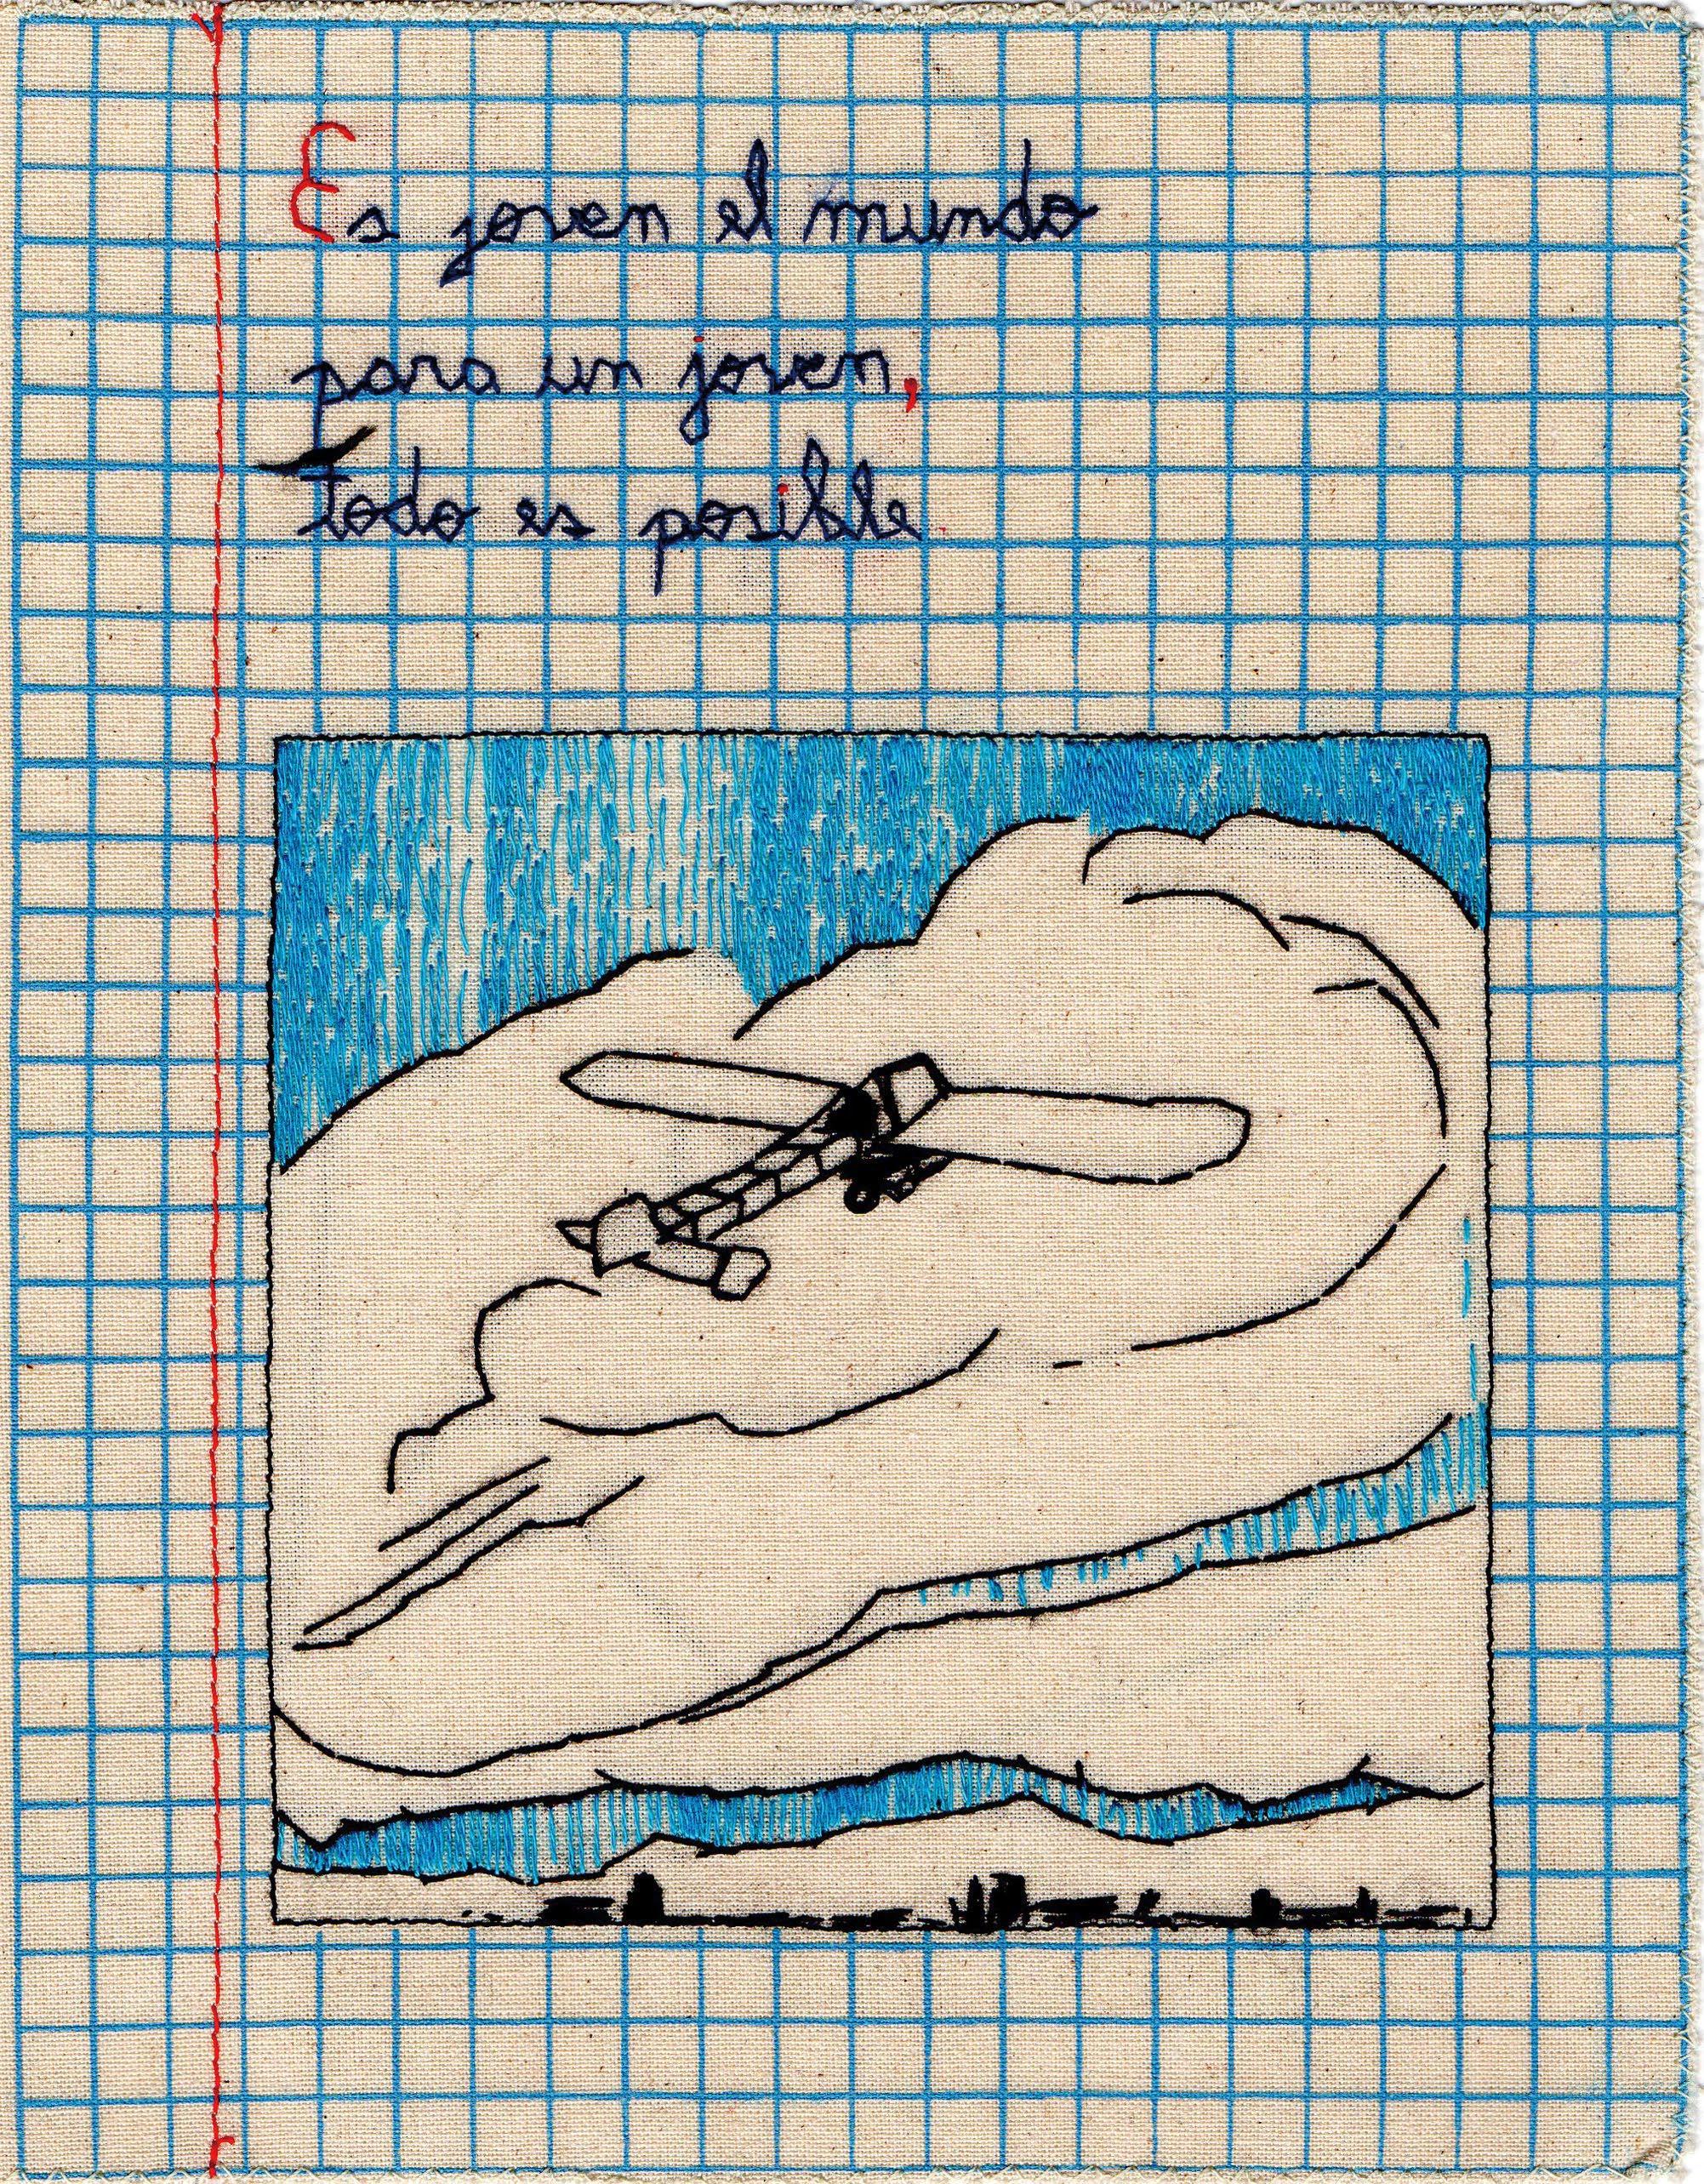 Es joven el mundo
para un joven,
todo es posible